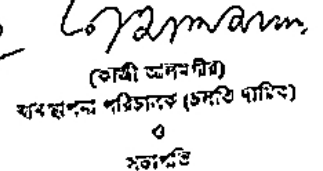 (কাজী আলমগীর)
ব্যবস্থাপনা পরিচালক (চলতি দায়িত্ব)
ও
সভাপতি